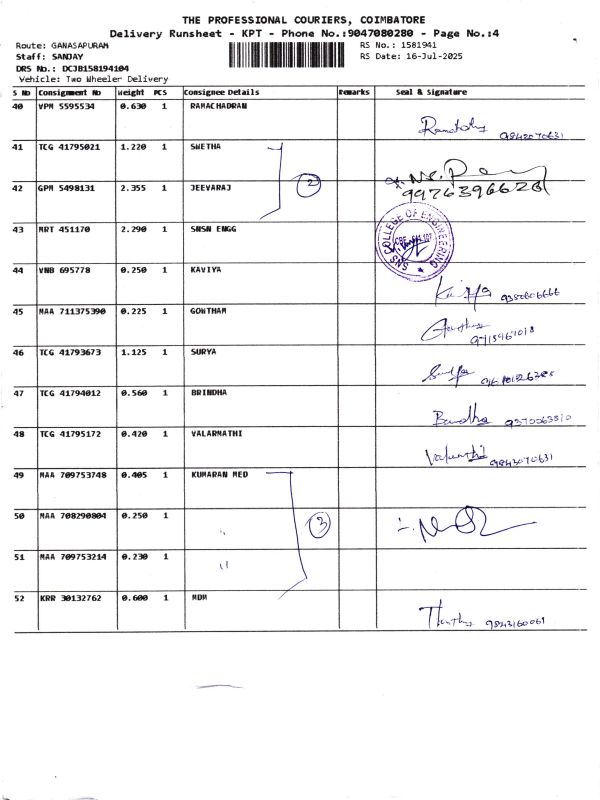 THE PROFESSIONAL COURIERS, COIMBATORE
Delivery Runsheet - KPT - Phone No.:9047080280 - Page No.:4
Route: GANASAPURAM RS No.: 1581941
Staff: SANJAY RS Date: 16-Jul-2025
DRS No.: DCJB158194104
Vehicle: Two Wheeler Delivery
S No Consignment No Weight PCS Consignee Details Remarks Seal & Signature
40 VPM 5595534 0.630 1 RAMACHADRAN
9842070631
41 TCG 41795021 1.220 1 SWETHA
2
42 GPM 5498131 2.355 1 JEEVARAJ
9976396628
43 MRT 451170 2.290 1 SNSN ENGG
SNS COLLEGE OF ENGINEERING
CBE - 641 107
44 VNB 695778 0.250 1 KAVIYA
45 MAA 711375390 0.225 1 GOWTHAM
46 TCG 41793673 1.125 1 SURYA
Surya
47 TCG 41794012 0.560 1 BRINDHA
48 TCG 41795172 0.420 1 VALARMATHI
9843070631
49 MAA 709753748 0.405 1 KUMARAN MED
50 MAA 708290804 0.250 1 "
3
51 MAA 709753214 0.230 1 "
52 KRR 30132762 0.600 1 MDM
9843160061